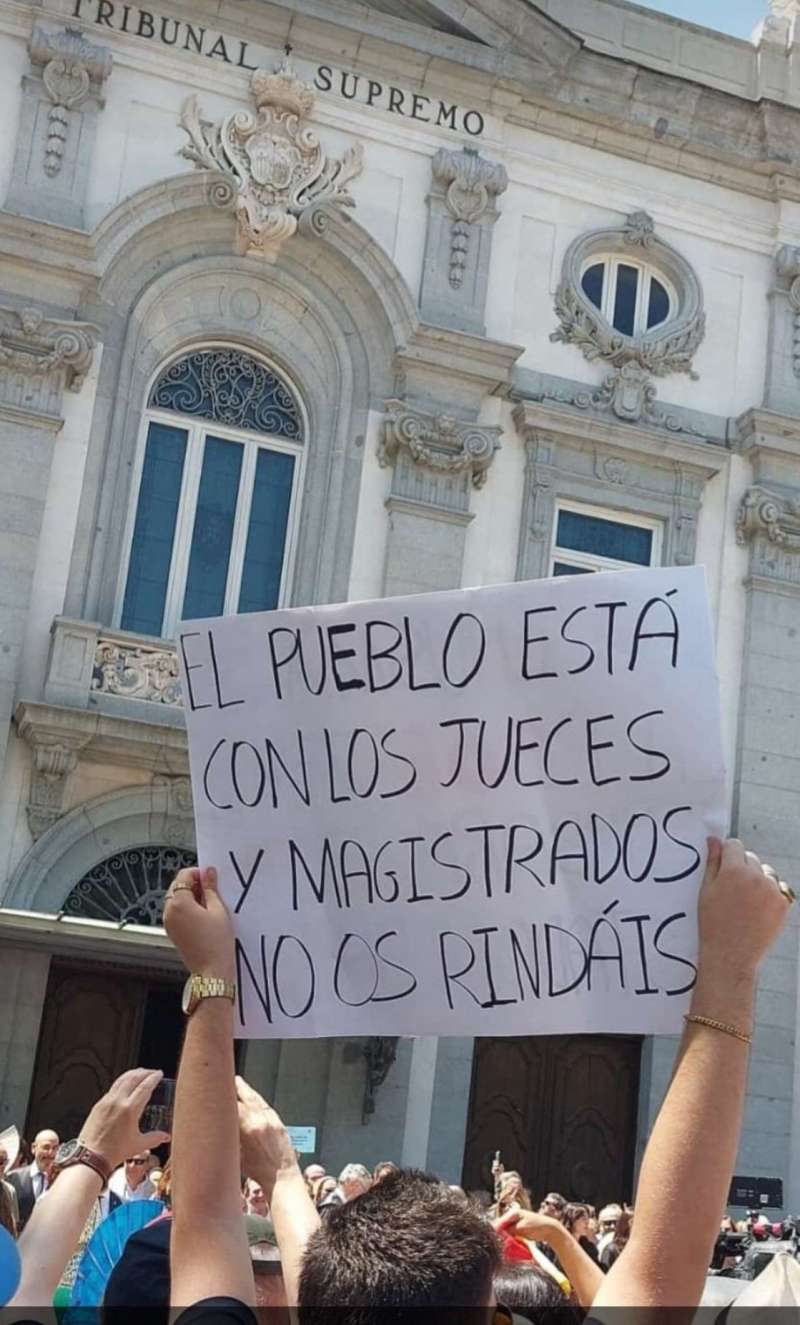 TRIBUNAL SUPREMO
EL PUEBLO ESTÁ
CON LOS JUECES
Y MAGISTRADOS
NO OS RINDÁIS